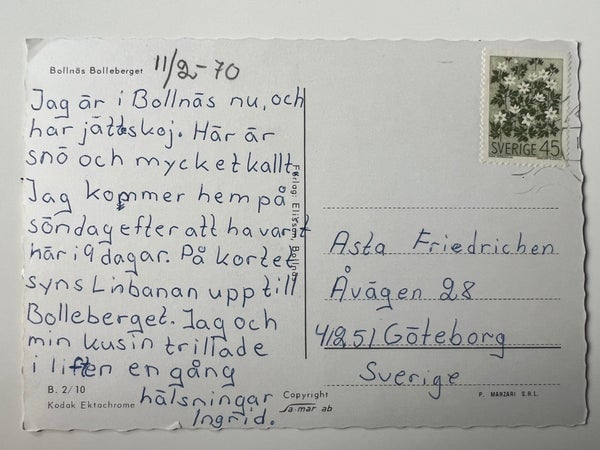 Bollnäs Bolleberget
11/2-70
Jag är i Bollnäs nu, och
har jätteskoj. Här är
snö och mycket kallt.
Jag kommer hem på
söndag efter att ha varit
här i 9 dagar. På kortet
syns Linbanan upp till
Bolleberget. Jag och
min kusin trillade
i liften en gång
hälsningar
Ingrid.
B. 2/10
Kodak Ektachrome
Förlag, Elisson, Bollnäs
Copyright
Sa-mar ab
SVERIGE 45
Asta Friedrichen
Åvägen 28
41251 Göteborg
Sverige
P. MARZARI S.R.L.